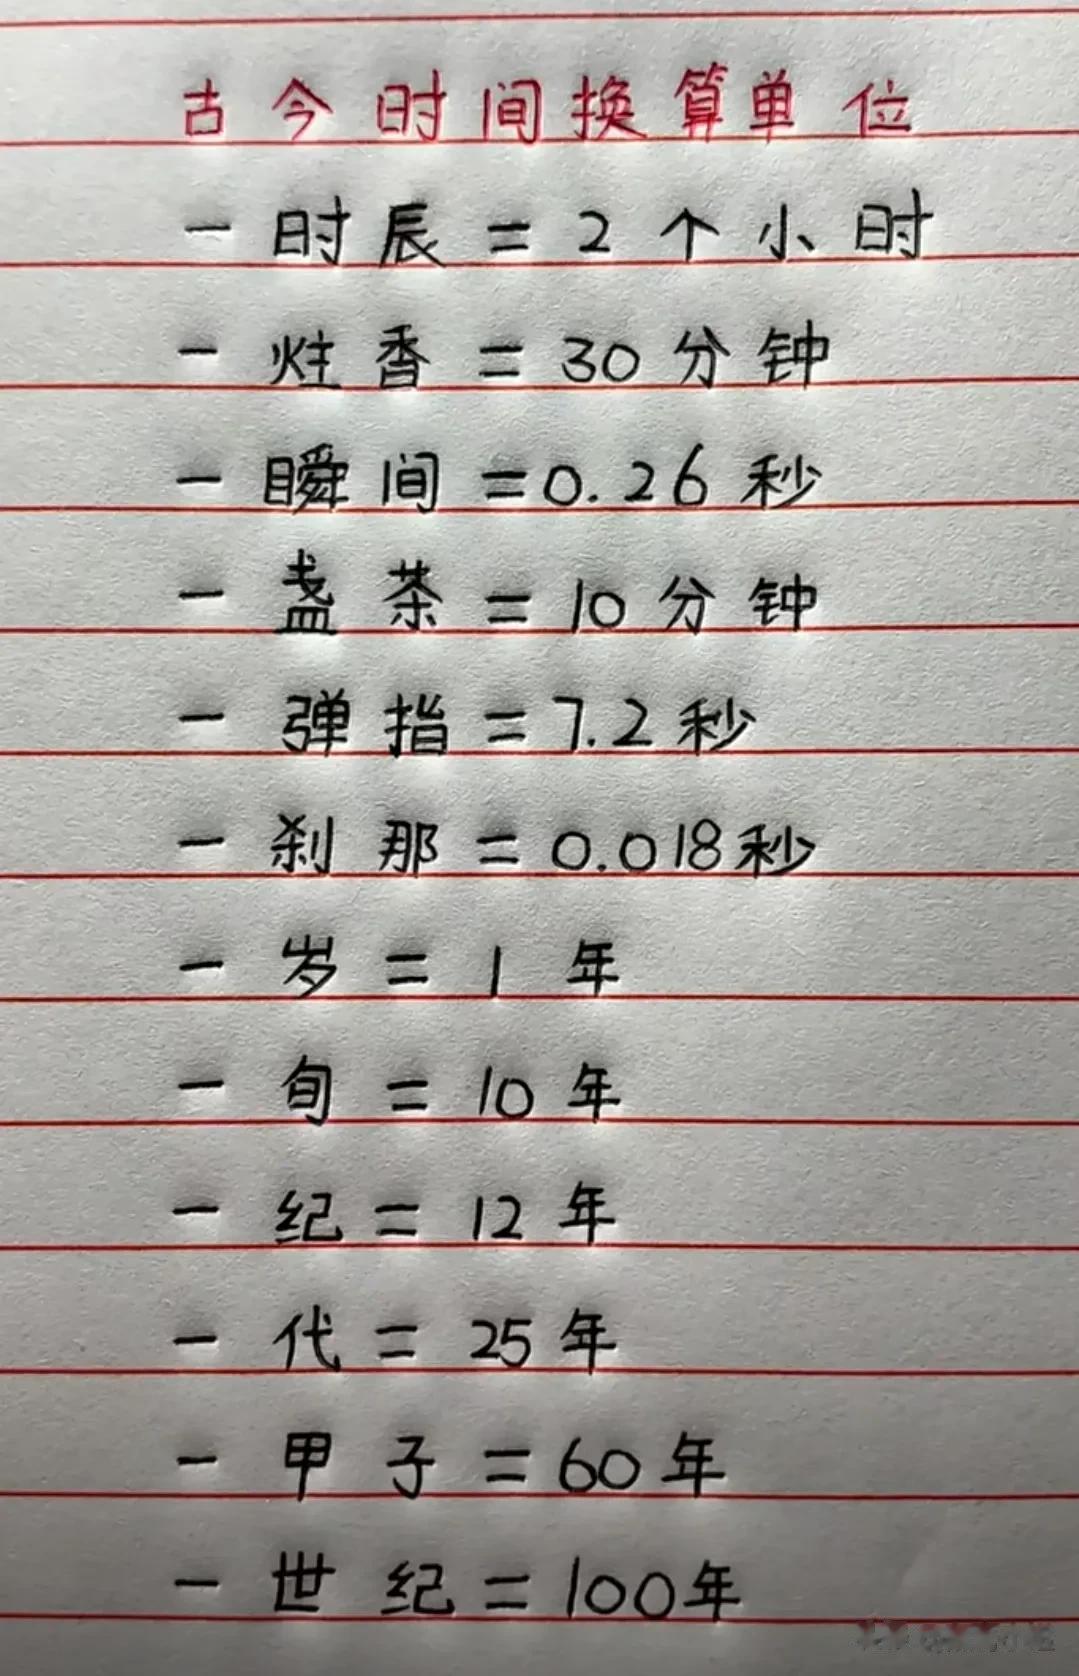 古今时间换算单位
一时辰=2个小时
一炷香=30分钟
一瞬间=0.26秒
一盏茶=10分钟
一弹指=7.2秒
一刹那=0.018秒
一岁=1年
一旬=10年
一纪=12年
一代=25年
一甲子=60年
一世纪=100年